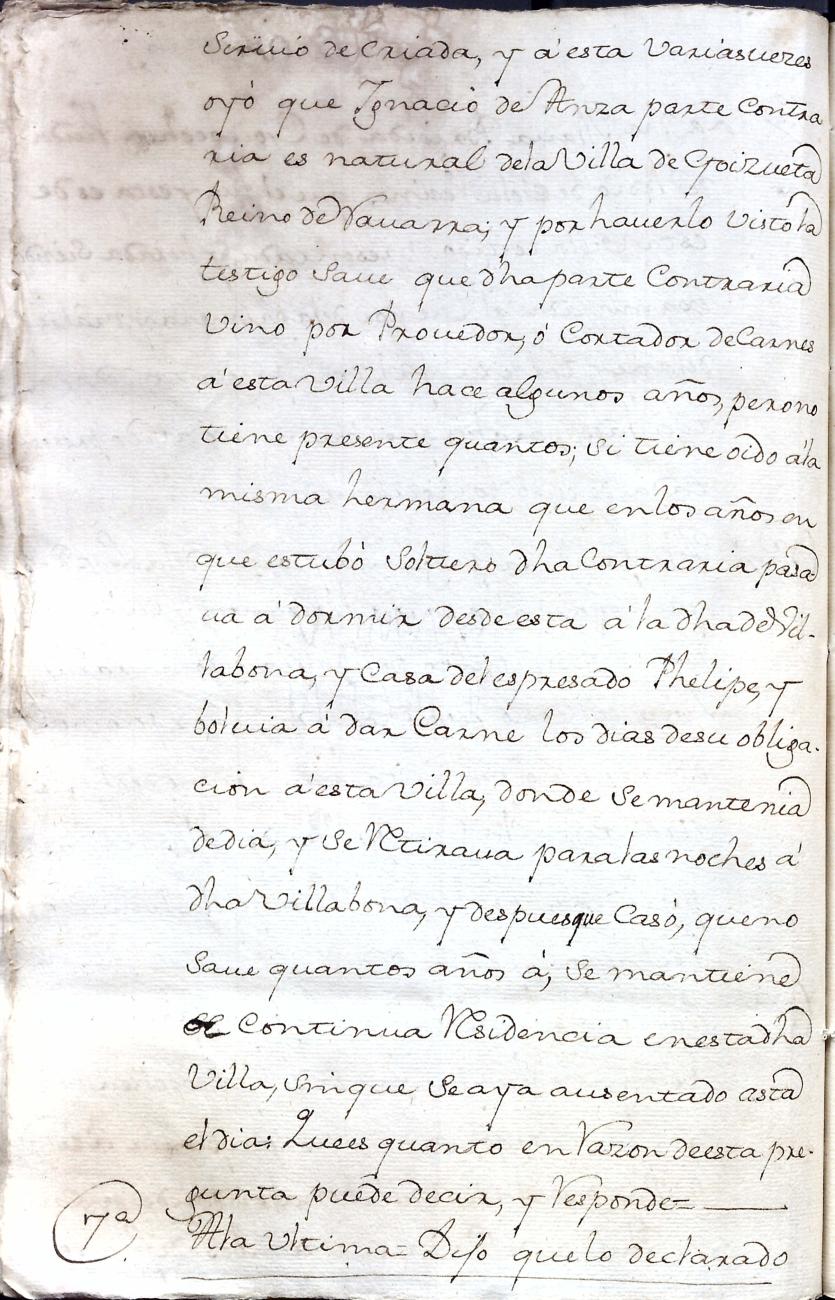 Siruió de Criada, y á esta varias uezes
oyó que Ygnacio de Anza parte Contra
ria es natural de la Villa de Goizueta
Reino de Navarra; y por hauerlo visto la
testigo Saue que dha parte Contraria
vino por Prouedor, ó Cortador de Carnes
á esta Villa hace algunos años, pero no
tiene presente quantos; si tiene oido á la
misma hermana que en los años en
que estubó Soltero dha Contraria pasa
ua á dormir desde esta á la dha de Vil-
labona, y Casa del espresado Phelipe, y
boluia á dar Carne los dias de su obliga-
cion á esta Villa, donde se mantenia
de dia, y se Retiraua para las noches á
dha Villabona, y despues que Casó, que no
Saue quantos años á, se mantiene
de Continua Residencia en esta dha
Villa, sin que se aya ausentado asta
el dia: Que es quanto en Razon de esta pre-
gunta puede decir, y Responde=
7ª A la Vltima= Dijo que lo declarado